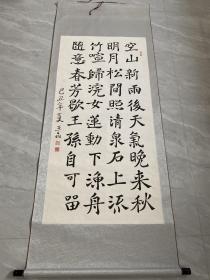 空山新雨後天氣晚来秋
明月松間照清泉石上流
竹喧歸浣女蓮動下漁舟
随意春芳歇王孫自可留
己丑年夏